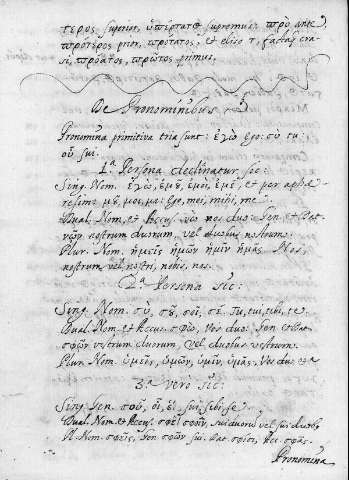 τερος superior, ὑπέρτατος supremus. πρὸ ante
πρότερος prior, πρότατος, et eliso τ, facta cra-
si, πρόατος, πρῶτος primus.
De Pronominibus
Pronomina primitiva tria sunt: ἐγὼ ego: σὺ tu:
οὗ sui.
1ª Persona declinatur sic:
Sing. Nom. ἐγὼ, ἐμοῦ, ἐμοὶ, ἐμὲ, et per aphæ-
resim μοῦ, μοι, με: ego, mei, mihi, me
Dual. Nom. et Accus. νὼ nos duo: Gen. et Dat.
νῷν nostrum duorum, vel duobus nostrum.
Plur. Nom. ἡμεῖς ἡμῶν ἡμῖν ἡμᾶς. Nos,
nostrum, vel nostri, nobis, nos.
2ª Persona sic:
Sing. Nom. σὺ, σοῦ, σοὶ, σέ. Tu, tui, tibi, te.
Dual. Nom. et Accus. σφὼ, Vos duo: Gen. et Dat.
σφῷν vestrum duorum, vel duobus vestrum.
Plur. Nom. ὑμεῖς, ὑμῶν, ὑμῖν, ὑμᾶς. Vos
3ª vero sic:
Sing. Gen. οὗ, οἷ, ἓ, sui, sibi, se.
Dual. Nom. et Accus. σφὲ σφὶν, sui duorum vel sui duobus
Pl. Nom. σφεῖς, Gen. σφῶν sui. Dat. σφίσι, Acc. σφᾶς.
Pronomina